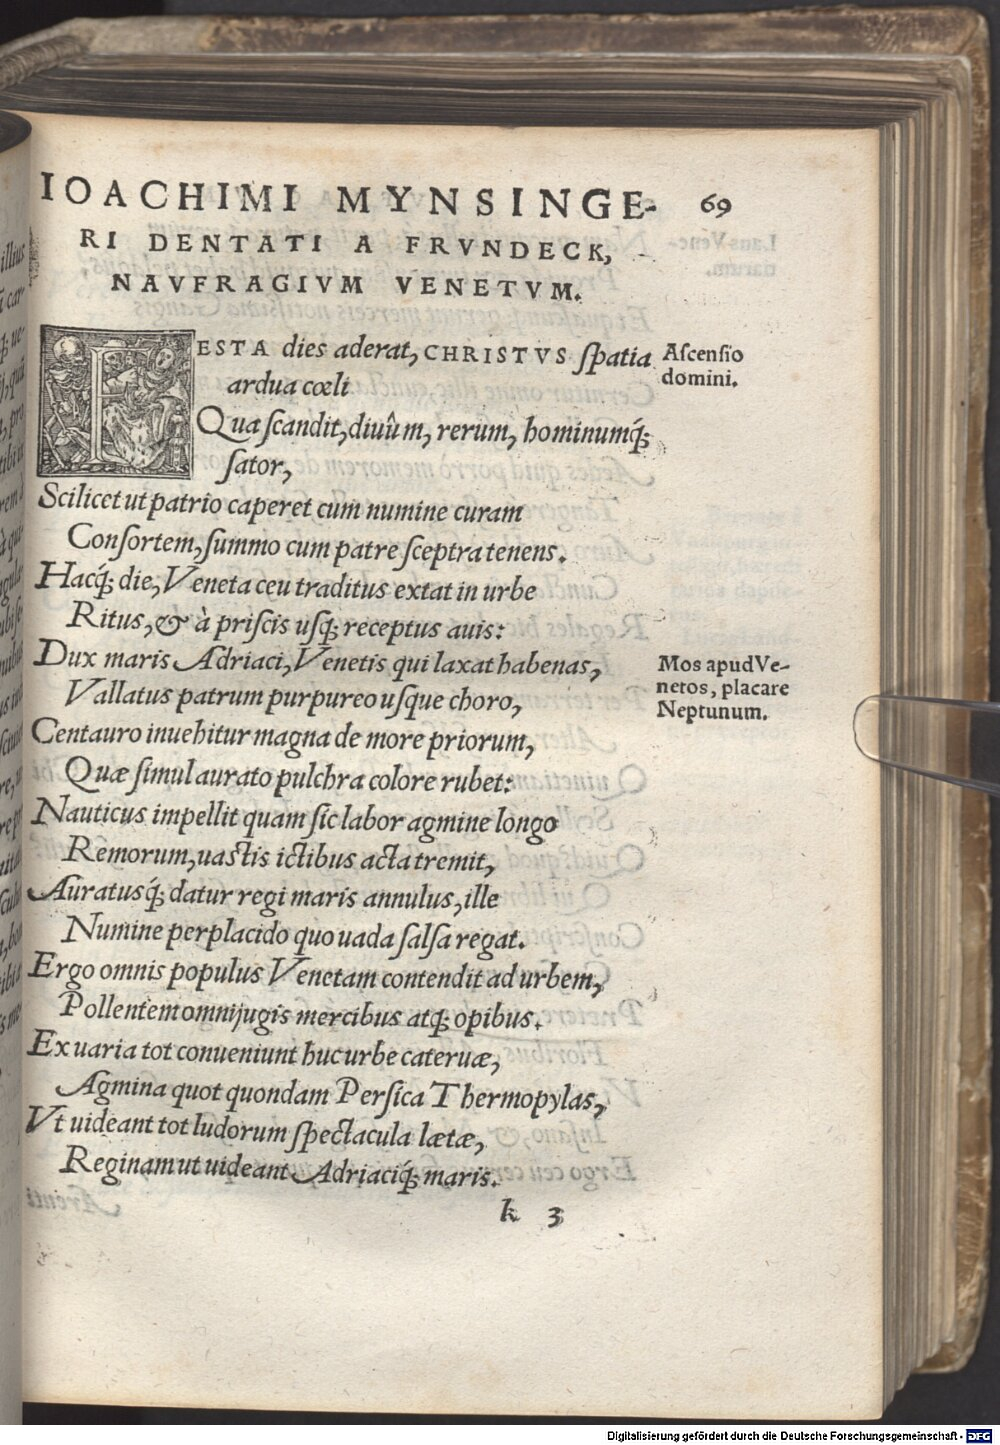 IOACHIMI MYNSINGE- 69
RI DENTATI A FRVNDECK,
NAVFRAGIVM VENETVM.
FESTA dies aderat, CHRISTVS ſpatia
ardua cœli
Qua ſcandit, diuûm, rerum, hominumq́;
ſator,
Scilicet ut patrio caperet cum numine curam
Conſortem, ſummo cum patre ſceptra tenens.
Hacq́; die, Veneta ceu traditus extat in urbe
Ritus, & à priſcis uſq; receptus auis:
Dux maris Adriaci, Venetis qui laxat habenas,
Vallatus patrum purpureo uſque choro,
Centauro inuehitur magna de more priorum,
Quæ ſimul aurato pulchra colore rubet:
Nauticus impellit quam ſic labor agmine longo
Remorum, uaſtis ictibus acta tremit,
Auratusq́; datur regi maris annulus, ille
Numine perplacido quo uada ſalſa regat.
Ergo omnis populus Venetam contendit ad urbem,
Pollentem omnijugis mercibus atq; opibus.
Ex uaria tot conueniunt huc urbe cateruæ,
Agmina quot quondam Perſica Thermopylas,
Vt uideant tot ludorum ſpectacula lætæ,
Reginam ut uideant Adriaciq́; maris.
k 3
Aſcenſio
domini.
Mos apud Ve-
netos, placare
Neptunum.
Digitalisierung gefördert durch die Deutsche Forschungsgemeinschaft - DFG